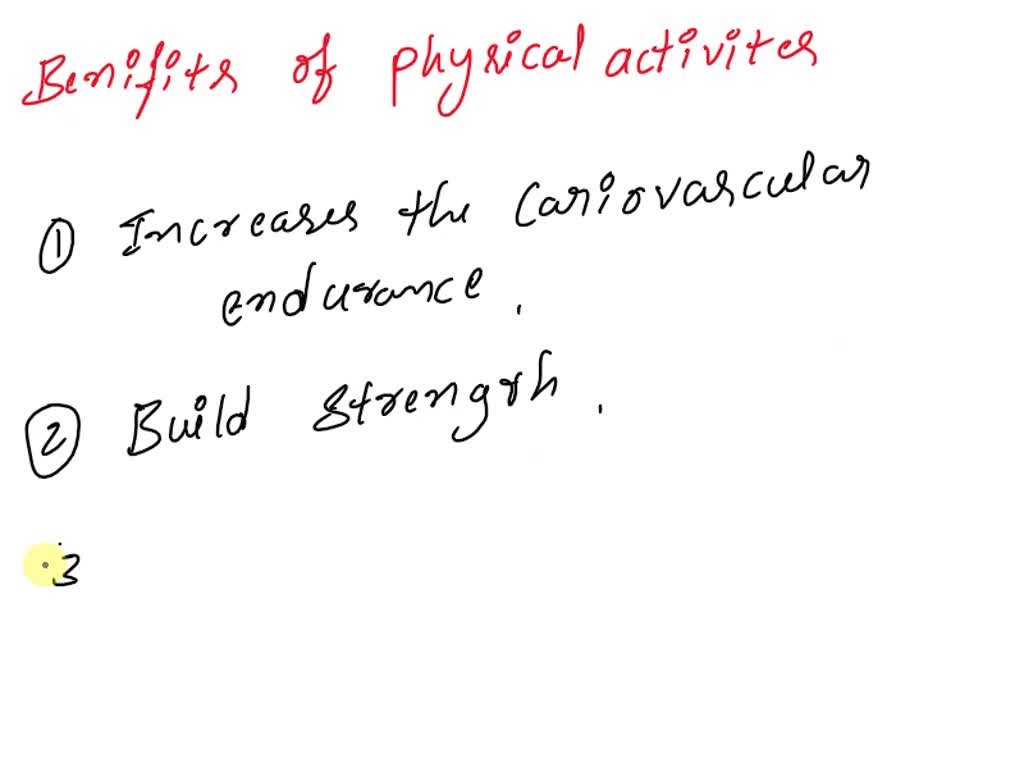 Benifits of physical activites
① Increases the Cariovascular
endurance.
② Build Strength.
3